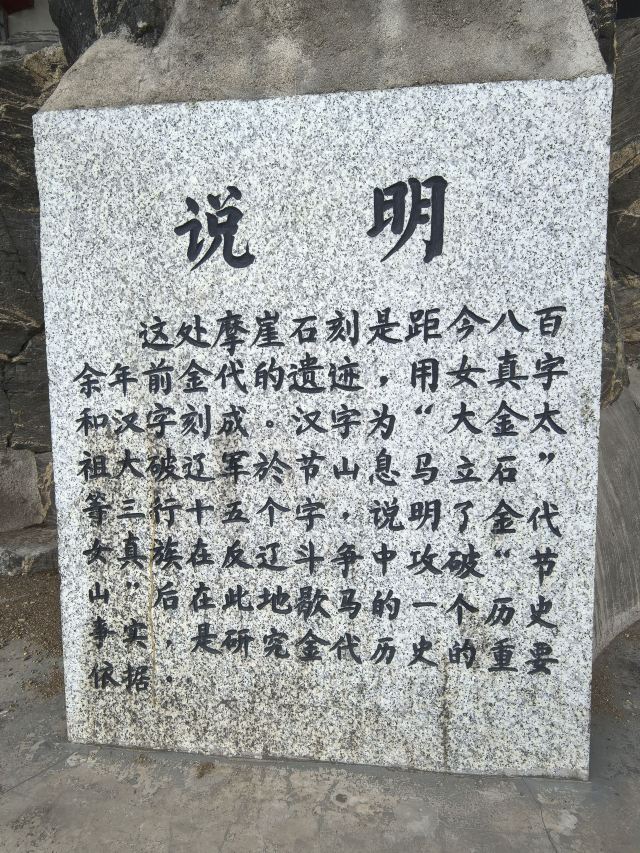 说明
这处摩崖石刻是距今八百
余年前金代的遗迹，用女真字
和汉字刻成。汉字为“大金太
祖大破辽军於节山息马立石”
等三行十五个字，说明了金代
女真族在反辽斗争中攻破“节
山”后在此地歇马的一个历史
事实，是研究金代历史的重要
依据。